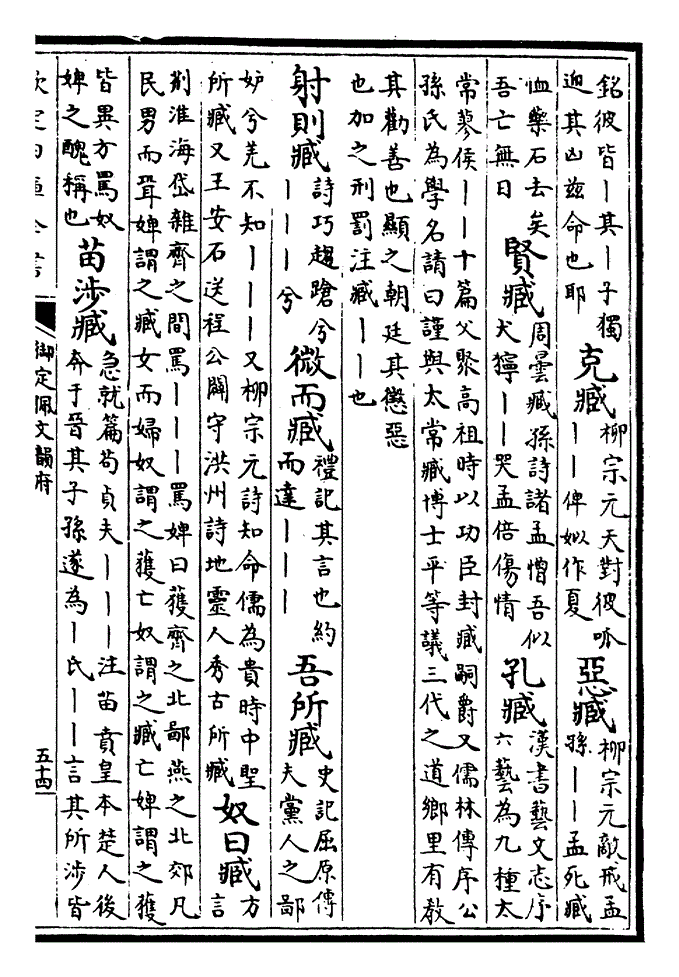 銘彼皆丨其丨子獨
迦其凶兹命也耶
克臧
柳宗元天對彼呱
丨丨俾姒作夏
惡臧
柳宗元敵戒孟
孫丨丨孟死臧
恤藥石去矣
吾亡無日
賢臧
周曇臧孫詩諸孟憎吾似
犬獰丨丨哭孟倍傷情
孔臧
漢書藝文志序
六藝為九種太
常蓼侯丨丨十篇父聚高祖時以功臣封臧嗣爵又儒林傳序公
孫氏為學名請曰謹與太常臧博士平等議三代之道鄉里有教
其勸善也顯之朝廷其懲惡
也加之刑罰注臧丨丨也
射則臧
詩巧趨蹌兮
丨丨丨兮
微而臧
禮記其言也約
而達丨丨丨
吾所臧
史記屈原傳
夫黨人之鄙
妒兮羌不知丨丨丨又柳宗元詩知命儒為貴時中聖
所臧又王安石送程公闢守洪州詩地靈人秀古所臧
奴曰臧
方
言
荆淮海岱雜齊之間罵丨丨丨罵婢曰獲齊之北鄙燕之北郊凡
民男而聓婢謂之臧女而婦奴謂之獲亡奴謂之臧亡婢謂之獲
皆異方罵奴
婢之醜稱也
苗涉臧
急就篇苟貞夫丨丨丨注苗賁皇本楚人後
奔于晉其子孫遂為丨氏丨丨言其所涉皆
欽定四庫全書
御定佩文韻府
五十四